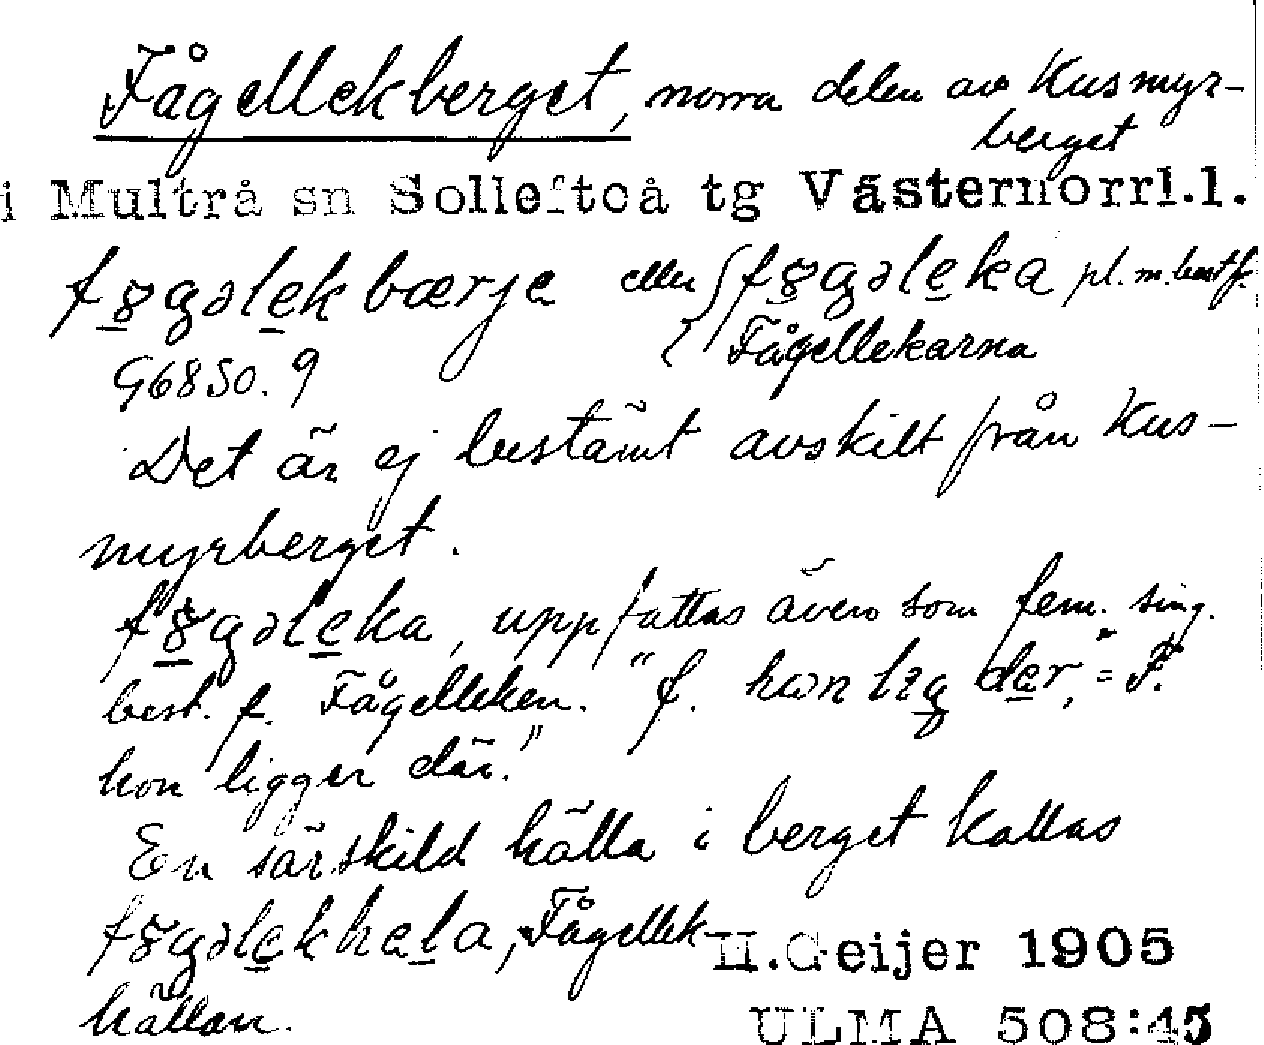 Fågellekberget, norra delen av Kusmyr-
berget
i Multrå sn Sollefteå tg Västernorrl.l.
eller pl. m. best f.
Fågellekarna
G6850.9
Det är ej bestämt avskilt från Kus-
myrberget.
uppfattas även som fem. sing.
best. f. Fågelleken. "f. = F.
hon ligger där."
En särskild hälla i berget kallas
Fågellek-
hällan.
H.Geijer 1905
ULMA 508:45